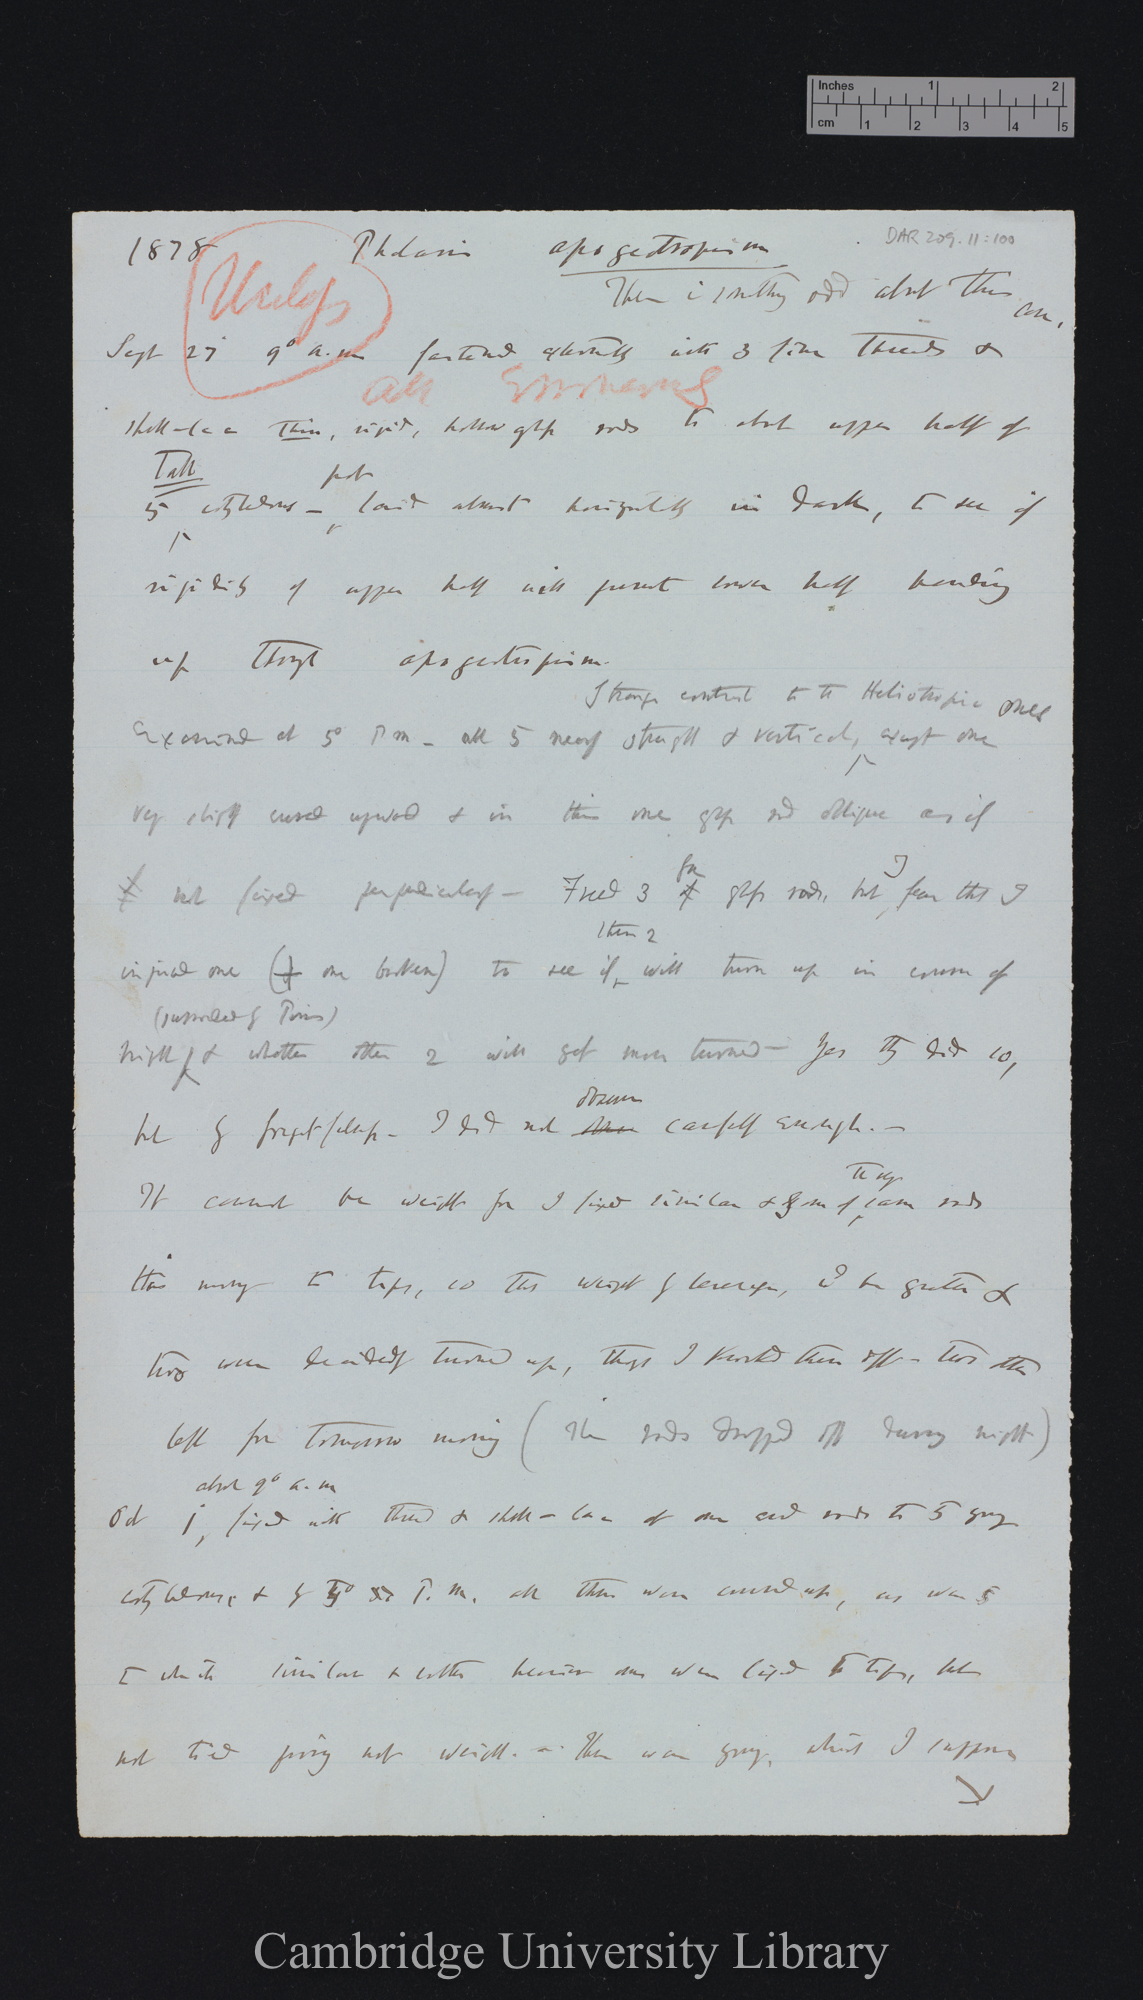 Inches 1 2
cm 1 2 3 4 5
DAR 209.11:100
1878 Phalaris apogeotropism
There is something odd about this case.
Useless
Sept 27 9° a.m fastened with 3 fine threads &
all Erroneous
shell-lac thin, rigid, hollow glass rods to about upper half of
Tall pot
5 cotyledons – laid almost horizontally in dark, to see if
rigidity of upper half will prevent lower half bending
up through apogeotropism.
Strange contrast to the Heliotropic ones
Examined at 5° P.m – all 5 nearly straight & vertical, except one
very slightly curved upward & in this one glass rod oblique as if
not fixed perpendicularly – Freed 3 from glass rods, but I fear that I
these 2
injured one (& one broken) to see if will turn up in course of
night & whether other 2 will get more turned – Yes they did so,
observe
but by I did not carefully enough. –
the very
It cannot be weight for I fixed similar & some of same rods
this morning to tips, so that weight by leverage, wd be greater &
two were decidedly turned up, though I knocked them off – two others
left for tomorrow morning (The rods dropped off during night)
about 9° a.m
Oct 1, fixed with thread & shell-lac at one end rods to 5 young
cotyledons, & by P.m. all these were curved up, as were 5
to which similar & rather heavier ones were fixed to tips, but
not tied proving not weight. – These were young, which I suppose
Cambridge University Library